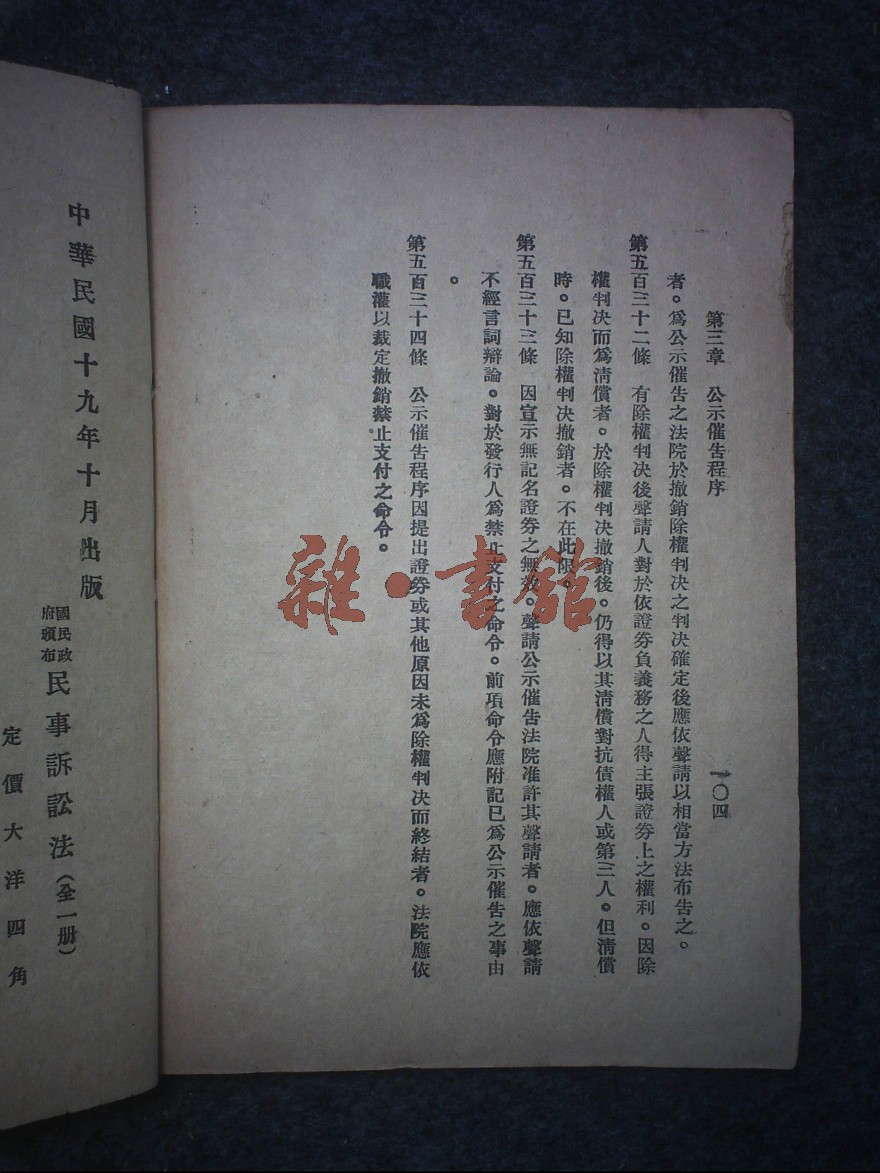 第三章　公示催告程序
一〇四
者。爲公示催告之法院於撤銷除權判决之判决確定後應依聲請以相當方法布告之。
第五百三十二條　有除權判决後聲請人對於依證券負義務之人得主張證券上之權利。因除
權判决而爲淸償者。於除權判决撤銷後。仍得以其淸償對抗債權人或第三人。但淸償
時。已知除權判决撤銷者。不在此限。
第五百三十三條　因宣示無記名證券之無效。聲請公示催告法院准許其聲請者。應依聲請
不經言詞辯論。對於發行人爲禁止支付之命令。前項命令應附記已爲公示催告之事由
。
第五百三十四條　公示催告程序因提出證券或其他原因未爲除權判决而終結者。法院應依
職權以裁定撤銷禁止支付之命令。
中華民國十九年十月出版
國民政府頒布
民事訴訟法（全一册）
定價大洋四角
雜·書館